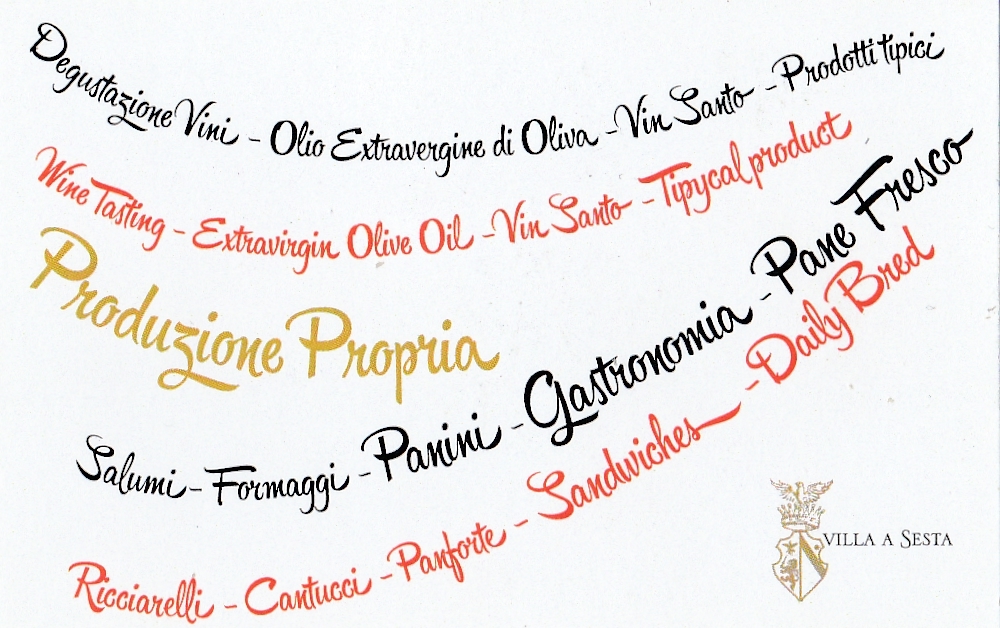 Degustazione Vini - Olio Extravergine di Oliva - Vin Santo - Prodotti tipici
Wine Tasting - Extravirgin Olive Oil - Vin Santo - Tipycal product
Produzione Propria
Salumi - Formaggi - Panini - Gastronomia - Pane Fresco
Ricciarelli - Cantucci - Panforte - Sandwiches - Daily Bred
VILLA A SESTA